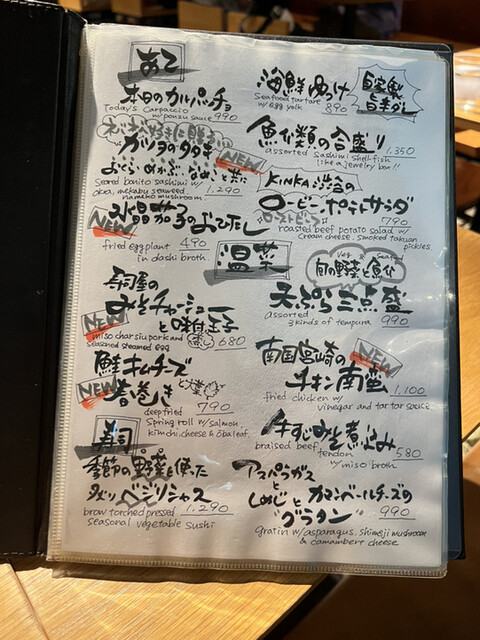 あて
本日のカルパッチョ
Today's Carpaccio
w/ponzu sauce 990
ネバネバ好きに贈る
カツオのタタキ
NEW
おくら・めかぶ・なめこと共に
Seared bonito sashimi w/ 1.290
okra, mekabu seaweed
nameko mushroom
NEW
水晶茄子のおひたし
fried eggplant 490
in dashi broth.
海鮮ゆっけ
Seafood tartare
w/egg yolk 890
自家製
魚貝類の合盛り
1.350
assorted sashimi shellfish
like a jewelry box!!
KINKA渋谷の
ロービーポテトサラダ
ローストビーフ 790
roasted beef potato salad w/
cream cheese, smoked takuan
pickles
温菜
寿司屋の
みそチャーシュー
と味付玉子
NEW
miso char siu pork and 680
seasoned steamed egg
鮭キムチーズ
NEW
春巻き
と大葉
deep fried 790
Spring roll w/salmon,
kimchi cheese & oba leaf.
Veg & Seafood
旬の野菜と魚介
天ぷら三点盛
assorted
3 kinds of tempura 990
南国宮崎の
NEW
チキン南蛮
1,100
fried chicken w/
vinegar and tartar sauce
牛すじみそ煮込み
braised beef 580
tendon
w/miso broth.
アスパラガス
としめじと
カマンベールチーズの
グラタン 990
gratin w/asparagus, shimeji mushroom
& camambert cheese
寿司
季節の野菜を使った
炙りベジリシャス
brow torched pressed 1.290
seasonal vegetable sushi